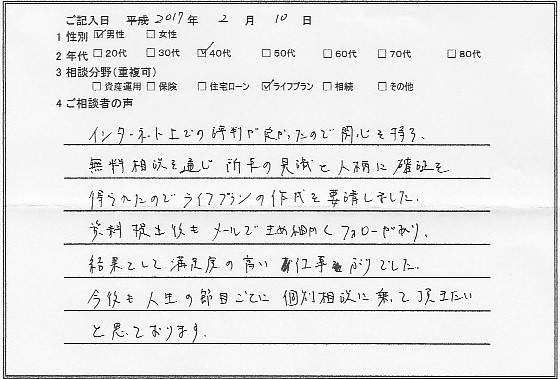 ご記入日 平成 2017 年 2 月 10 日
1 性別 ☑男性 □女性
2 年代 □20代 □30代 ☑40代 □50代 □60代 □70代 □80代
3 相談分野(重複可)
□資産運用 □保険 □住宅ローン ☑ライフプラン □相続 □その他
4 ご相談者の声
インターネット上での評判が良かったので関心を持ち、
無料相談を通じ 所長の見識と人柄に確証を
得られたのでライフプランの作成を要請しました。
資料提出後も メールできめ細やかくフォローがあり、
結果として満足度の高い 仕事ぶりでした。
今後も人生の節目ごとに 個別相談に乗って頂きたい
と思っております。